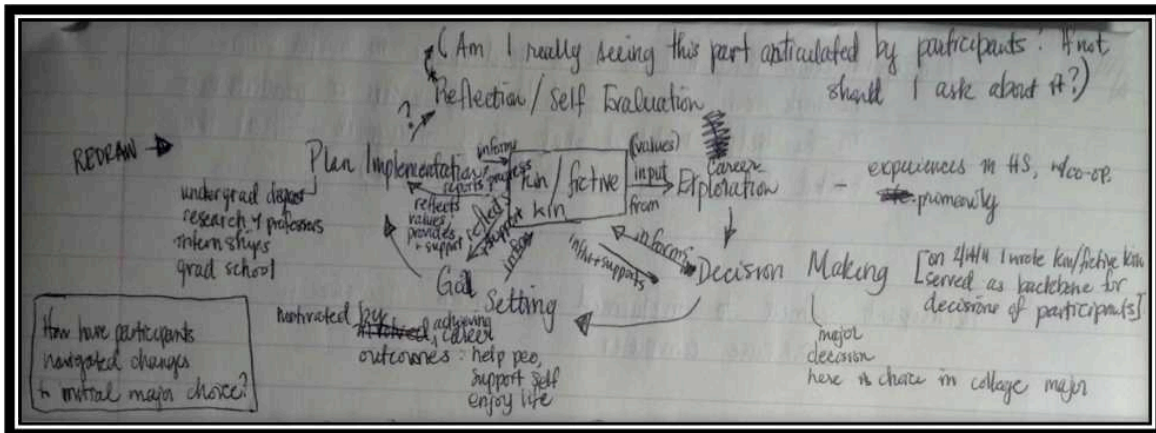 (Am I really seeing this part articulated by participants? If not
should I ask about it?)
Reflection / Self Evaluation
?
REDRAW
Plan Implementation
undergrad degree
research w/ professors
internships
grad school
informs
reports progress
reflects
values,
provides
+ support
kin / fictive
kin
(values)
input
from
Career
Exploration
- experiences in HS, w/co-op,
primarily
reflects
+ support
informs
informs
infln + supports
Decision Making
[on 2/14/11 I wrote kin/fictive kin
served as backbone for
decisions of participants]
major
decision
here is choice in college major
Goal
Setting
motivated by
achieving
career
outcomes: help peo,
support self
enjoy life
How have participants
navigated changes
to initial major choice?